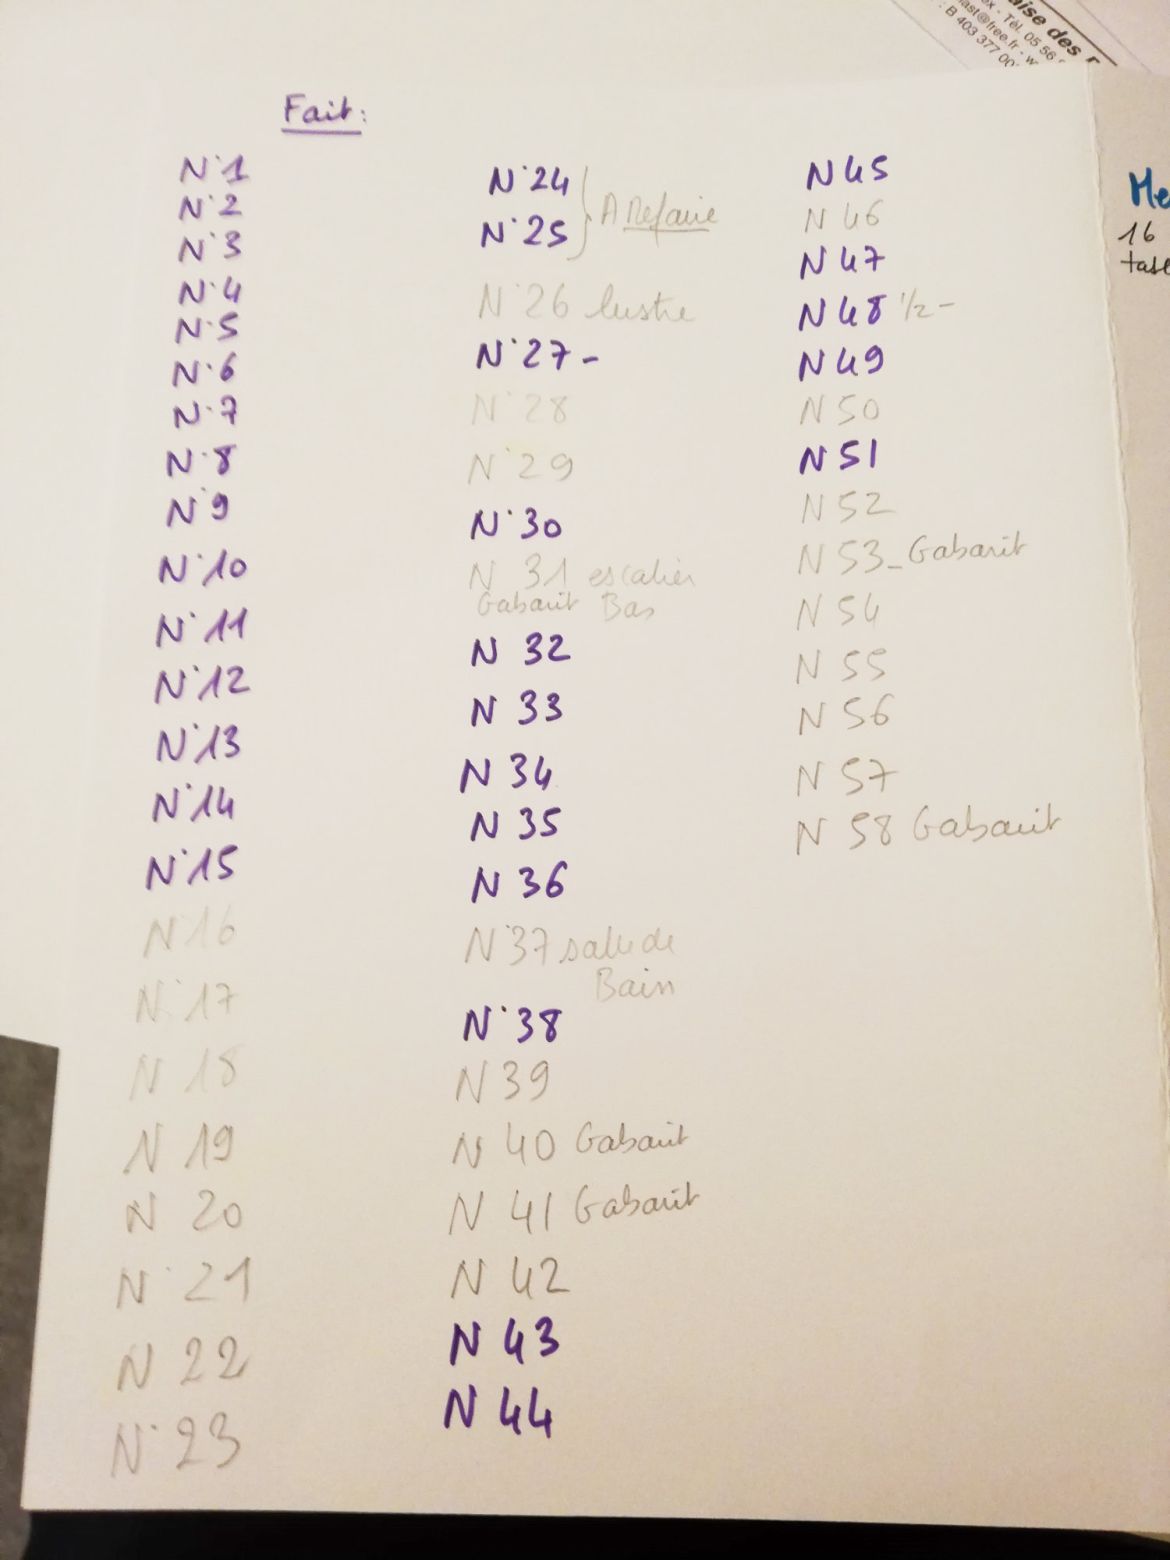 aise des
ex - Tél. 05 56
ast@free.fr - w
: B 403 377 00
Fait:
N°1
N°2
N°3
N°4
N°5
N°6
N°7
N°8
N°9
N°10
N°11
N°12
N°13
N°14
N°15
N°16
N°17
N 18
N 19
N 20
N°21
N 22
N°23
N°24
N°25
A Refaire
N°26 lustre
N°27-
N°28
N°29
N°30
N 31 escalier
Gabarit Bas
N 32
N 33
N 34
N 35
N 36
N°37 salle de
Bain
N°38
N 39
N 40 Gabarit
N 41 Gabarit
N 42
N 43
N 44
N 45
N 46
N 47
N 48 1/2 -
N 49
N 50
N 51
N 52
N 53 - Gabarit
N 54
N 55
N 56
N 57
N 58 Gabarit
Me
16
tase